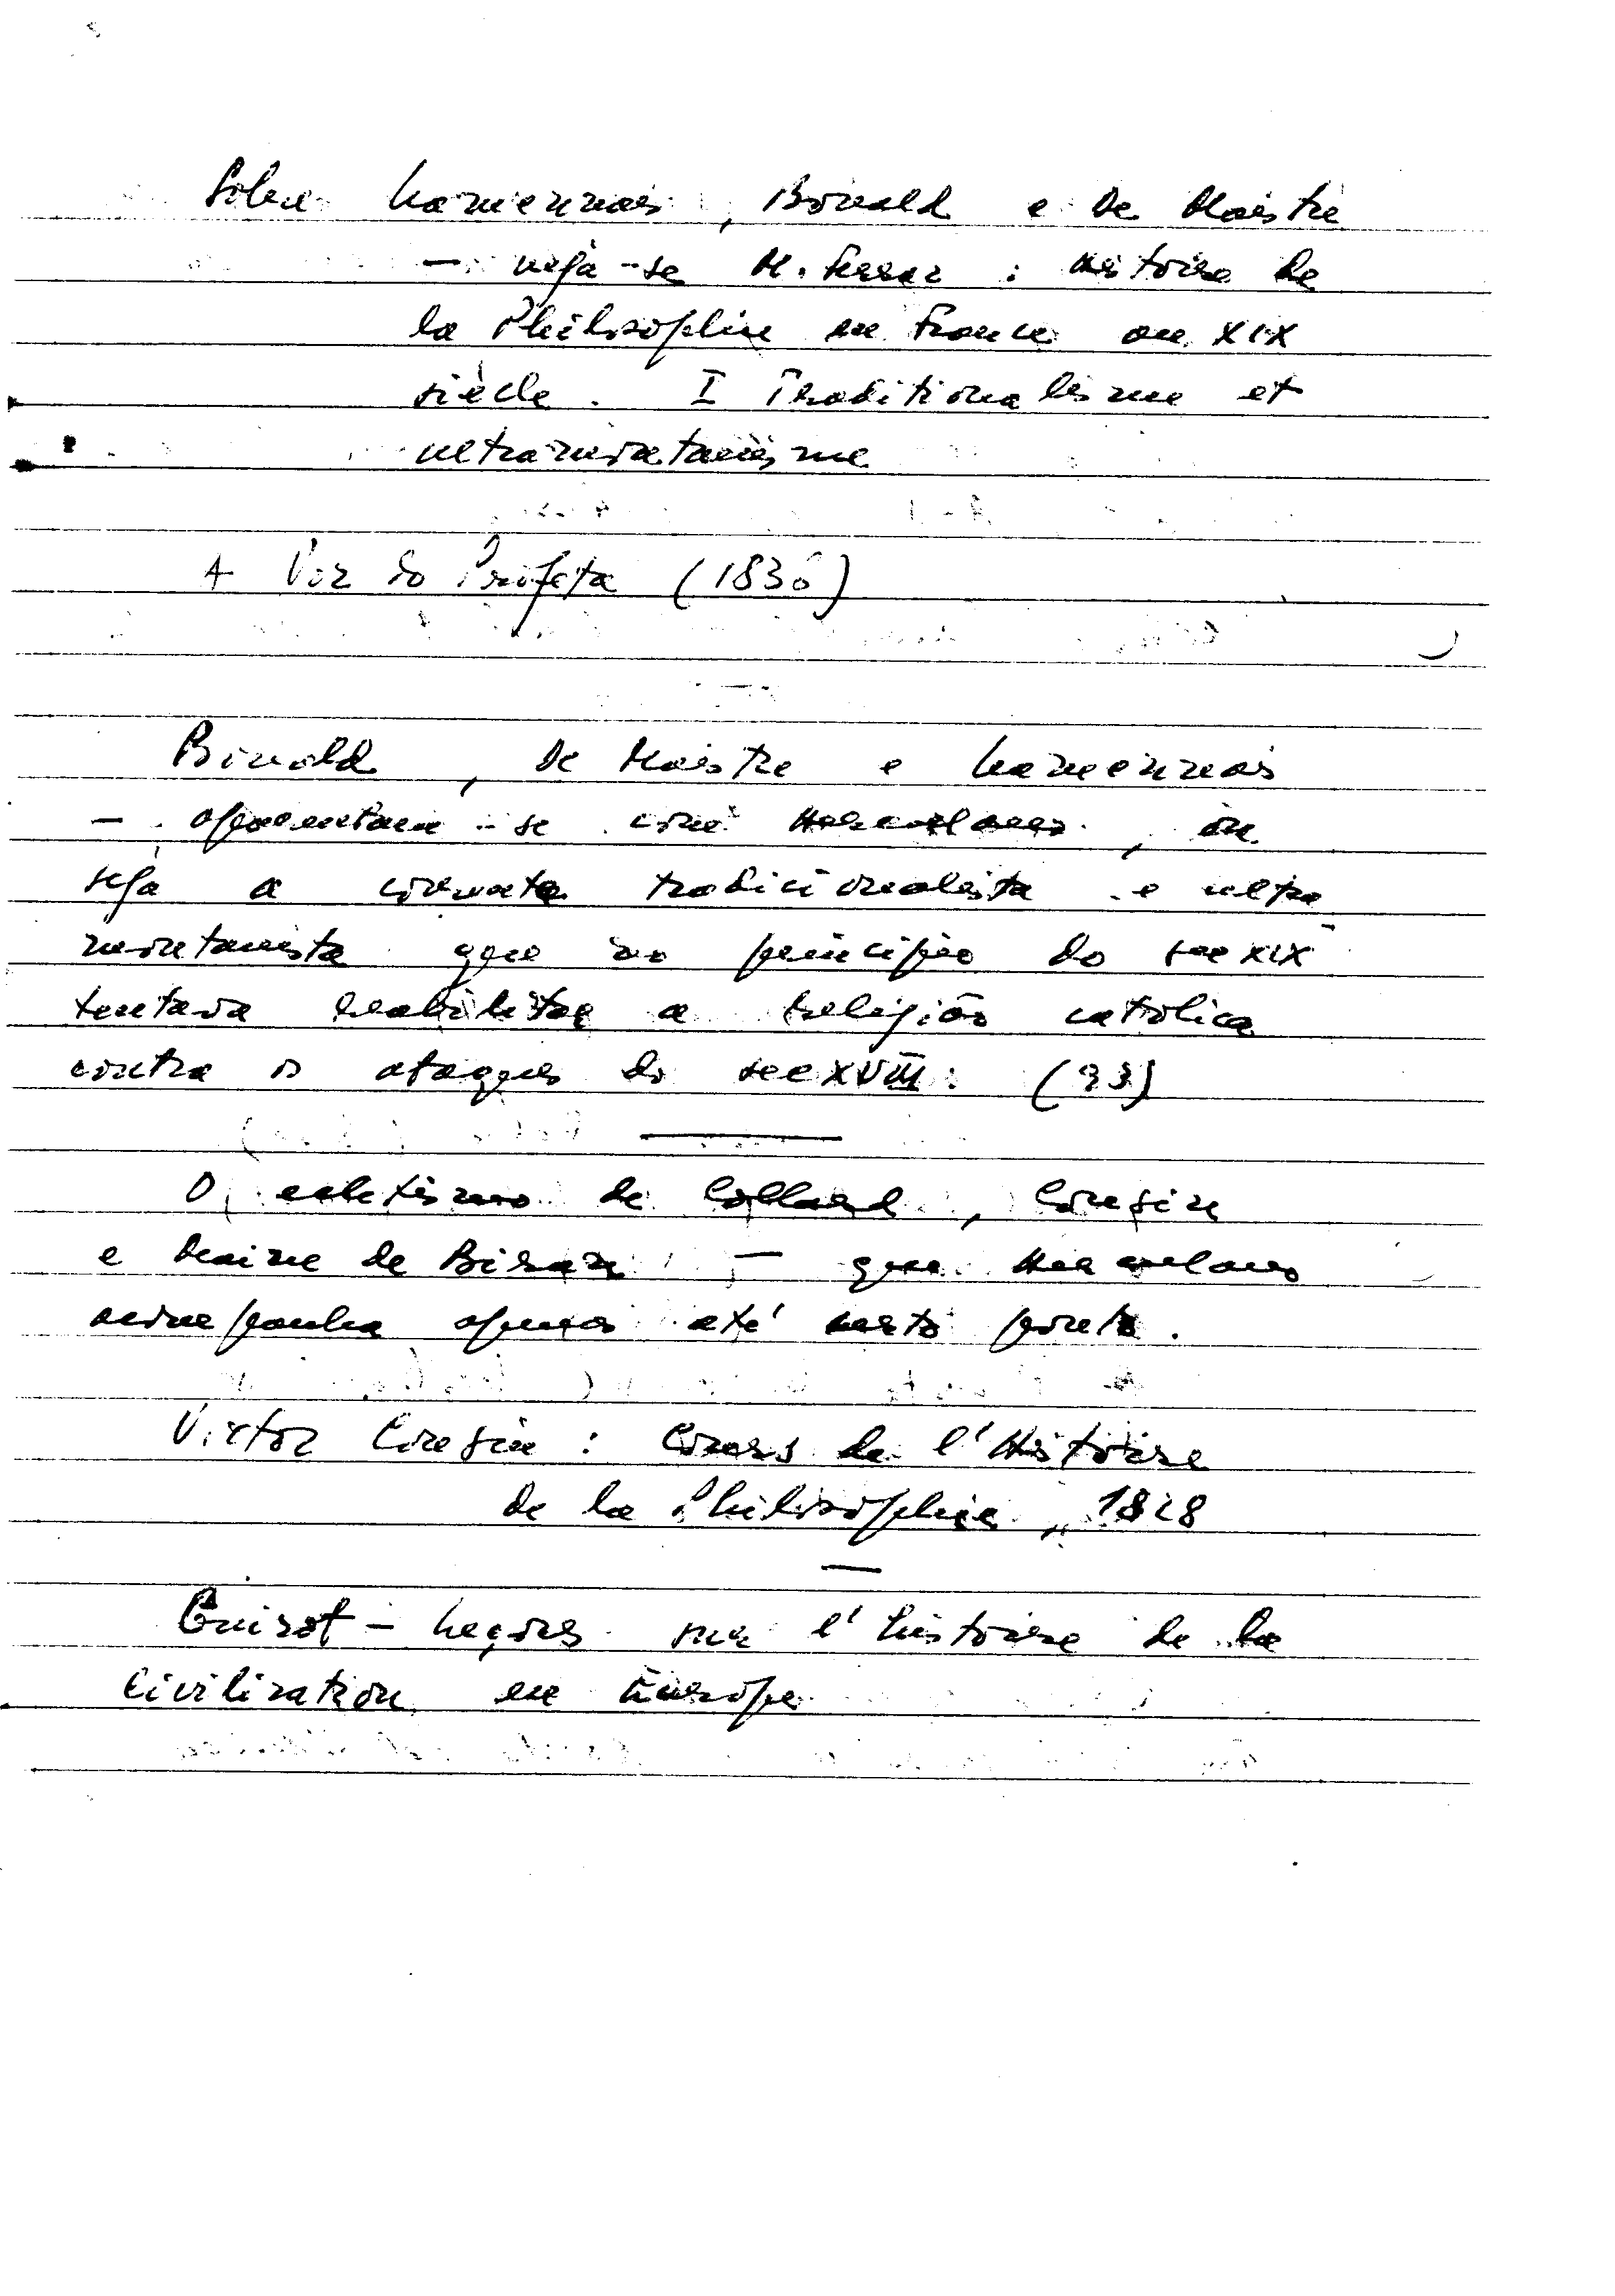 Sobre Lamennais, Bonald e De Maistre
— veja-se M. Ferraz : Histoire de
la Philosophie en France au XIX
siècle. I Traditionalisme et
ultramontanisme
A Voz do Profeta (1836)
Bonald, De Maistre e Lamennais
— aparentam-se com Herculano, ou
seja a corrente tradicionalista e ultra
montanista que no princípio do sec XIX
tentava reabilitar a religião católica
contra os ataques do sec XVIII: (93)
O ecletismo de Collard, Cousin
e Maine de Biran — que Herculano
acompanha apenas até certo ponto.
Victor Cousin : Cours de l'Histoire
de la Philosophie, 1828
Guizot — Leçons sur l'histoire de la
Civilization en Europe